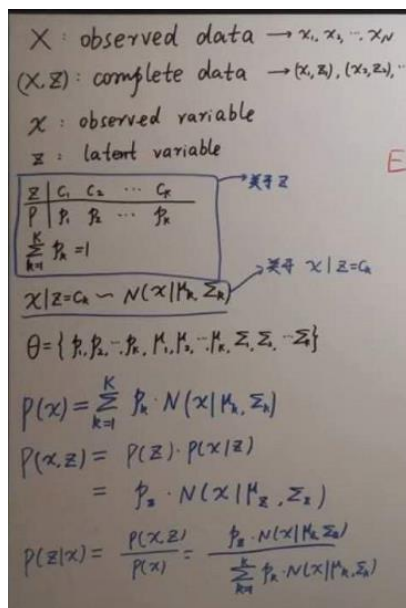 X : observed data → x₁, x₂, ... x_N
(X, Z) : complete data → (x₁, z₁), (x₂, z₂), ..
x : observed variable
z : latent variable
E
z | C₁ C₂ ... C_K → 关于 z
P | p₁ p₂ ... p_K
∑_{k=1}^{K} p_k = 1
x | z = C_k ~ N(x | μ_k, Σ_k) → 关于 x | z = C_k
θ = { p₁, p₂, ... p_K, μ₁, μ₂, ... μ_K, Σ₁, Σ₂, ... Σ_K }
P(x) = ∑_{k=1}^{K} p_k · N(x | μ_k, Σ_k)
P(x, z) = P(z) · P(x | z)
= p_z · N(x | μ_z, Σ_z)
P(z | x) = P(x, z) / P(x) = p_z · N(x | μ_z, Σ_z) / ∑_{k=1}^{K} p_k · N(x | μ_k, Σ_k)